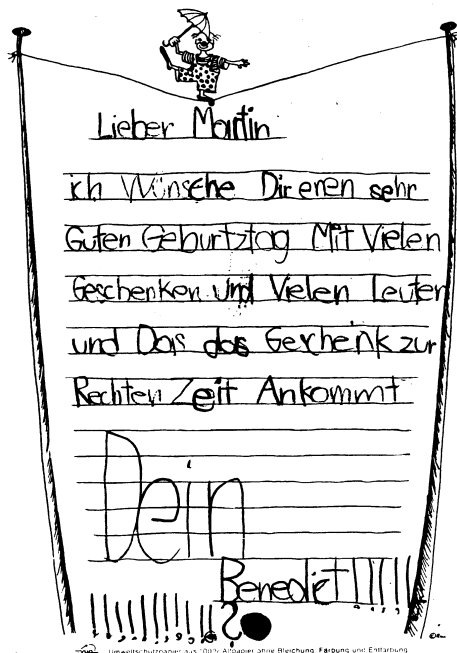 Lieber Martin
ich Wünsche Dir enen sehr
Guten Geburtztag Mit Vielen
Geschenken und Vielen Leuten
und Das das Geschenk zur
Rechten Zeit Ankommt
Dein
Benedict!!!!!
!!!!!!!!!!!?
Umweltschutzpapier aus 100% Altpapier ohne Bleichung, Färbung und Entfärbung